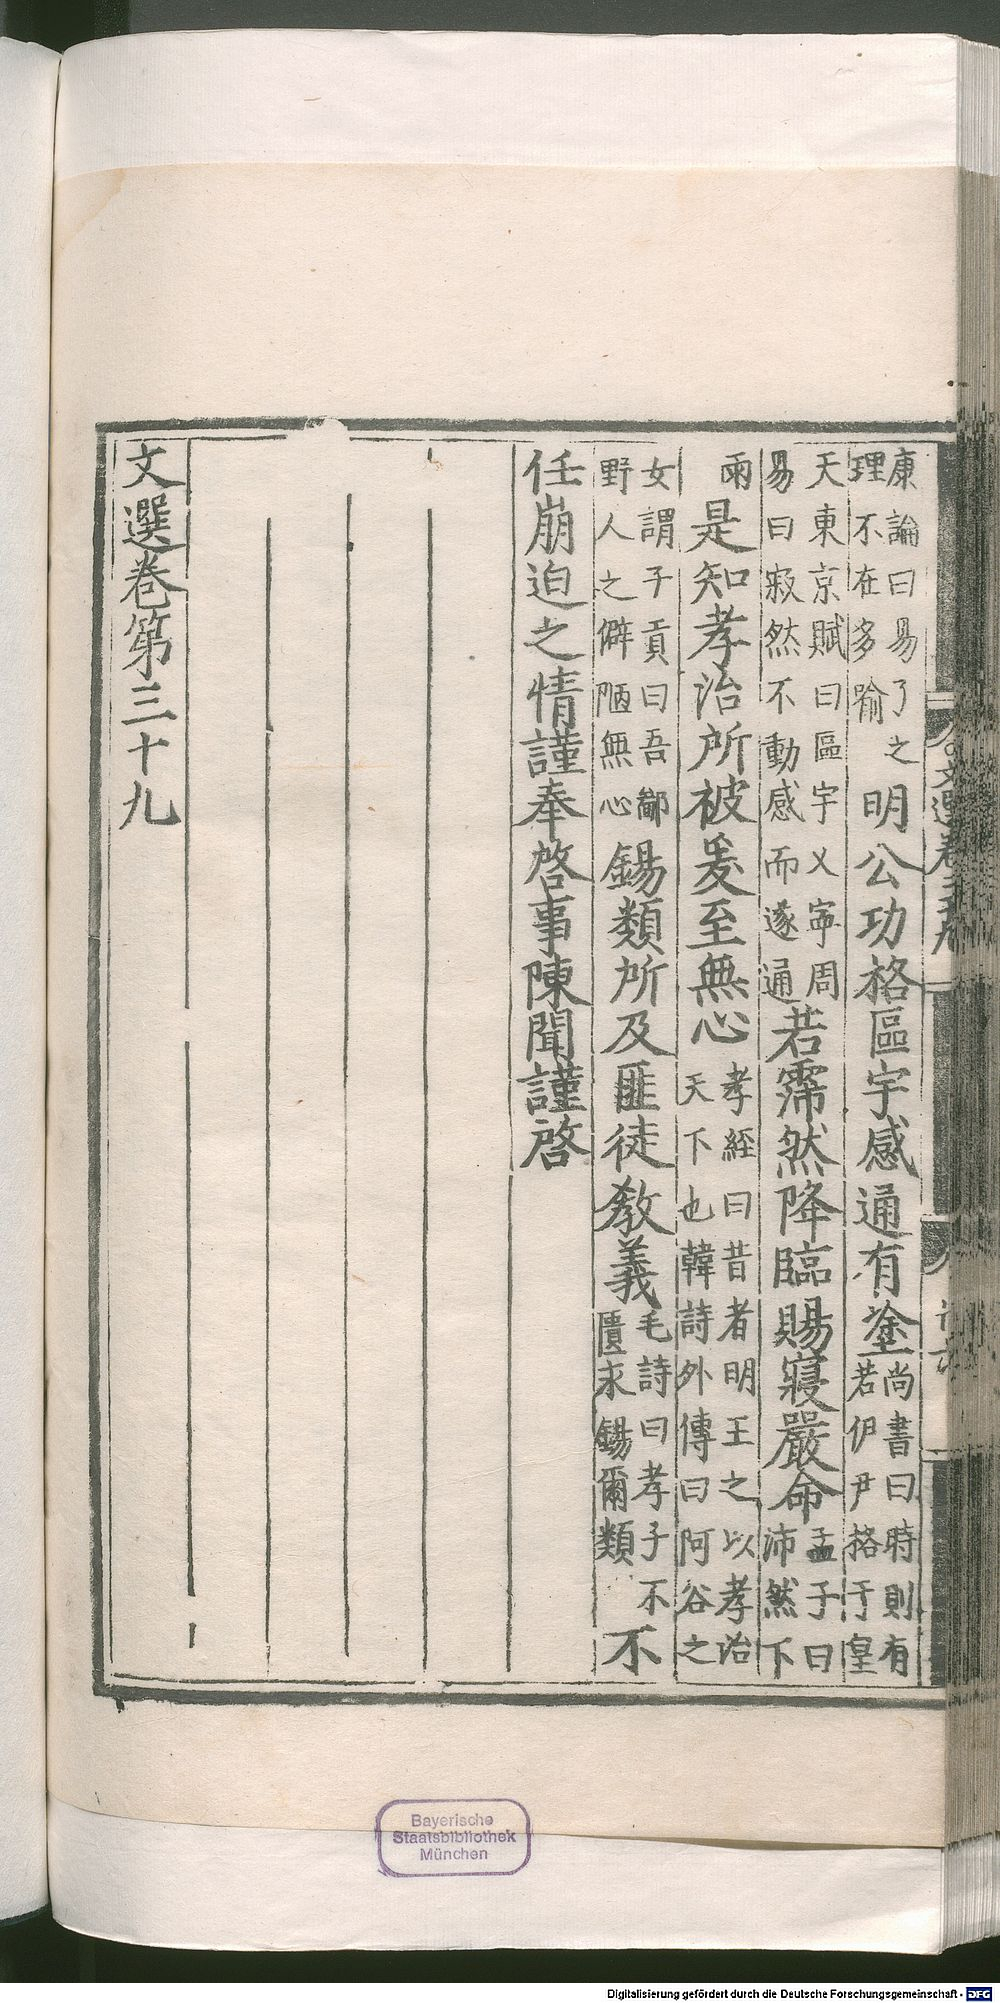 康論曰易了之理不在多喻明公功格區宇感通有塗尚書曰時則有若伊尹格于皇
天東京賦曰區宇乂寧周易曰寂然不動感而遂通若霈然降臨賜寢嚴命孟子曰沛然下
雨是知孝治所被爰至無心孝經曰昔者明王之以孝治天下也韓詩外傳曰阿谷之
女謂子貢曰吾鄙野人之僻陋無心錫類所及匪徒教義毛詩曰孝子不匱永錫爾類不
任崩迫之情謹奉啓事陳聞謹啓
文選卷第三十九
Bayerische
Staatsbibliothek
München
Digitalisierung gefördert durch die Deutsche Forschungsgemeinschaft - DFG